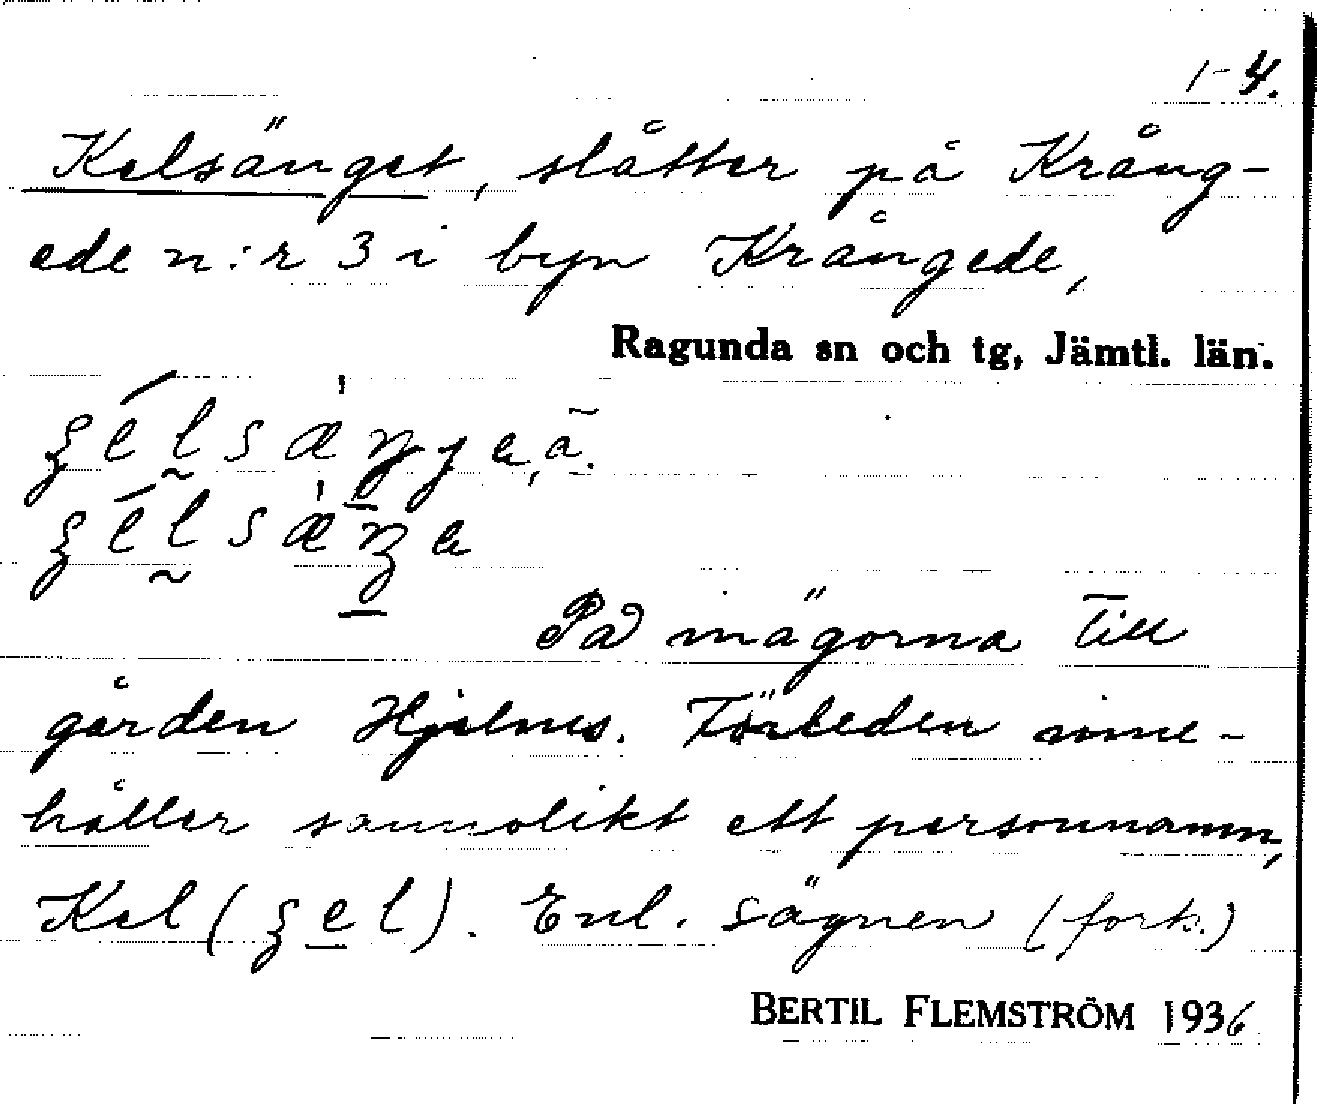 1-4.
Kelsänget, slåtter på Kräng-
ede n:r 3 i byn Krångede,
Ragunda sn och tg, Jämtl. län.
På mägorna till
gården Hjelmes. Förleden inne-
håller sannolikt ett personnamn,
Kel ( ). Enl. sägnen (forts.)
BERTIL FLEMSTRÖM 1936